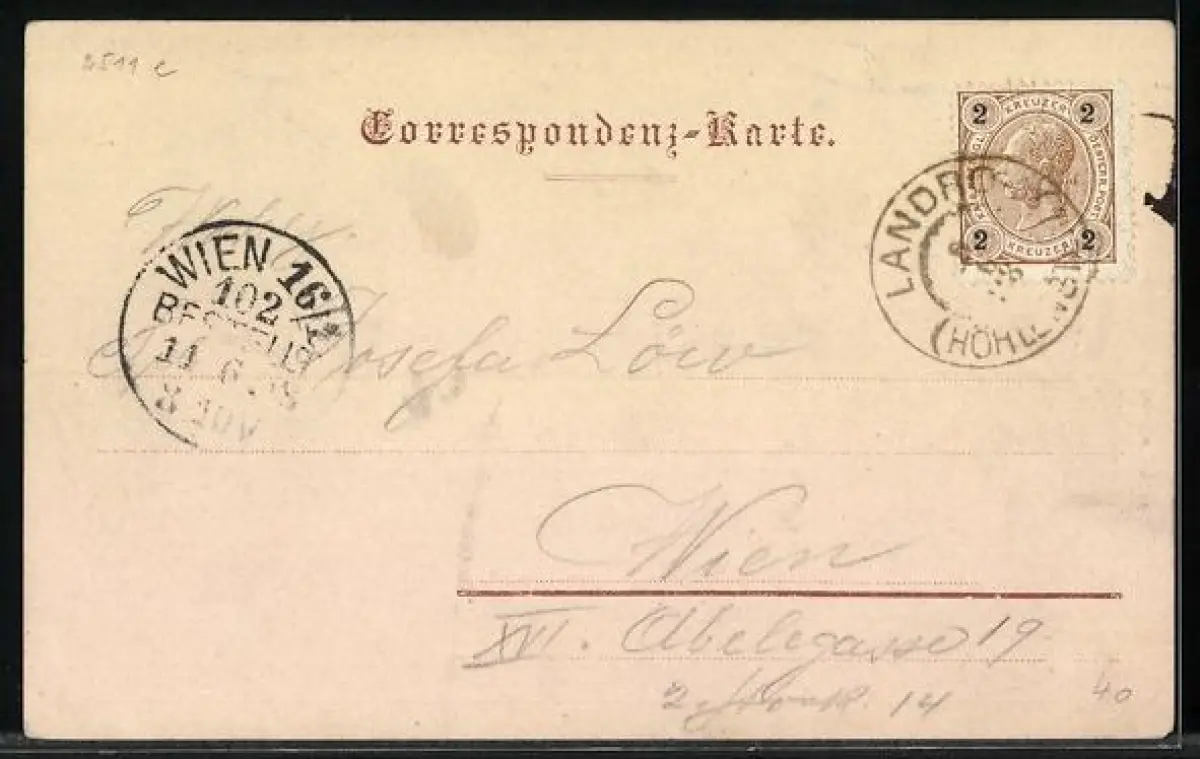 2511 e
Correspondenz-Karte.
2 KREUZER 2
2 KREUZER 2
LANDRO
(HÖHLEN
WIEN 16/1
102
BESTELLT
11 6 98
8 10V
Josefa Löw
Wien
XVI. Abelegasse 19
2. Stock. 14
40